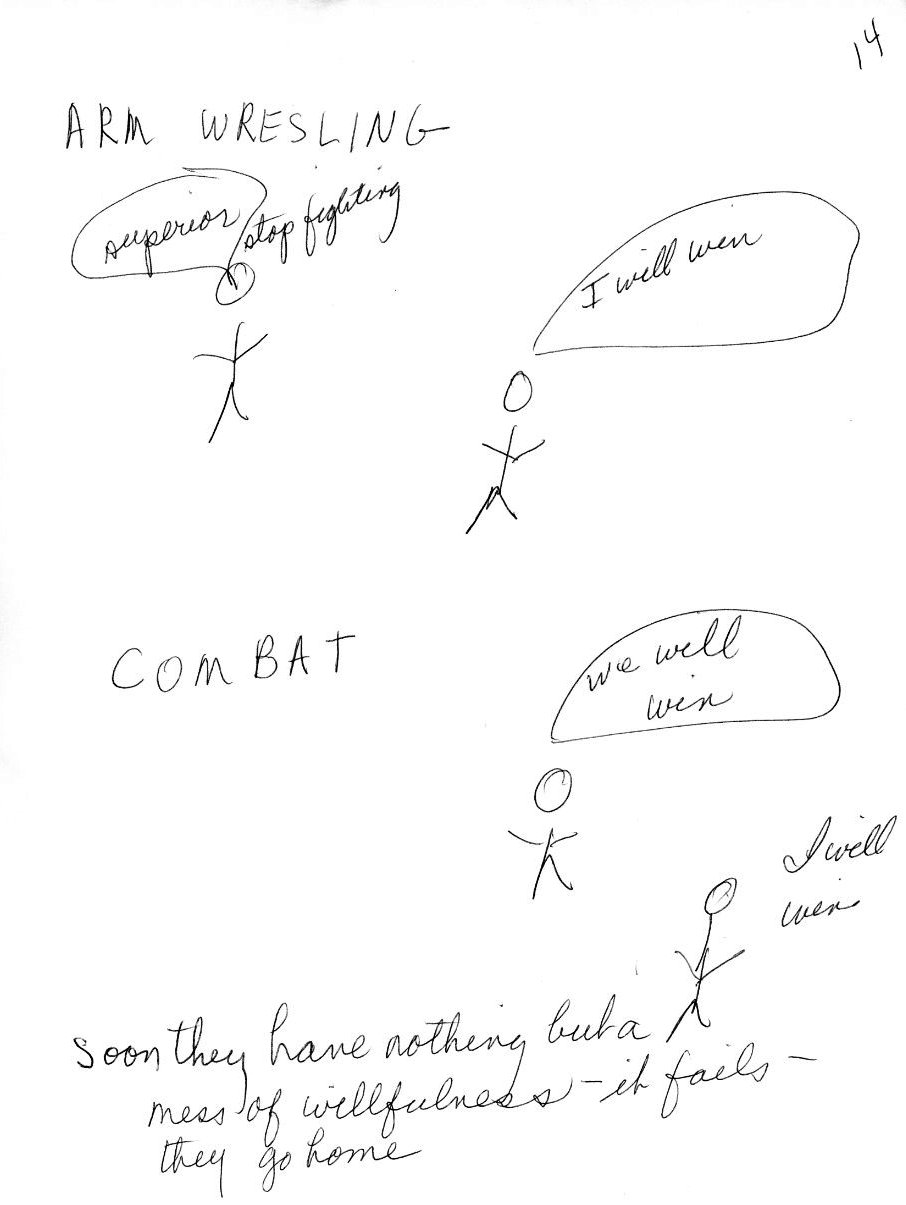 14
ARM WRESLING
superior stop fighting
I will win
COMBAT
we will
win
I will
win
soon they have nothing but a
mess of willfulness - it fails -
they go home